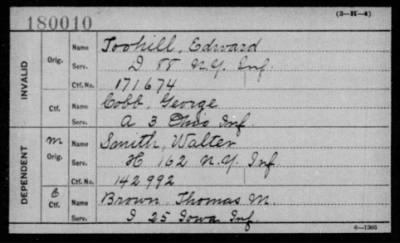 180010
(3-H-4)
INVALID
Orig.
Name Toohill, Edward
Serv. D 88 N.Y. Inf.
Ctf. No. 171674
Ctf.
Name Cobb, George
Serv. A 3 Ohio Inf.
DEPENDENT
M
Orig.
Name Smith, Walter
Serv. H 162 N.Y. Inf.
Ctf. No. 142992
C
Ctf.
Name Brown, Thomas M.
Serv. I 25 Iowa Inf.
6-1366